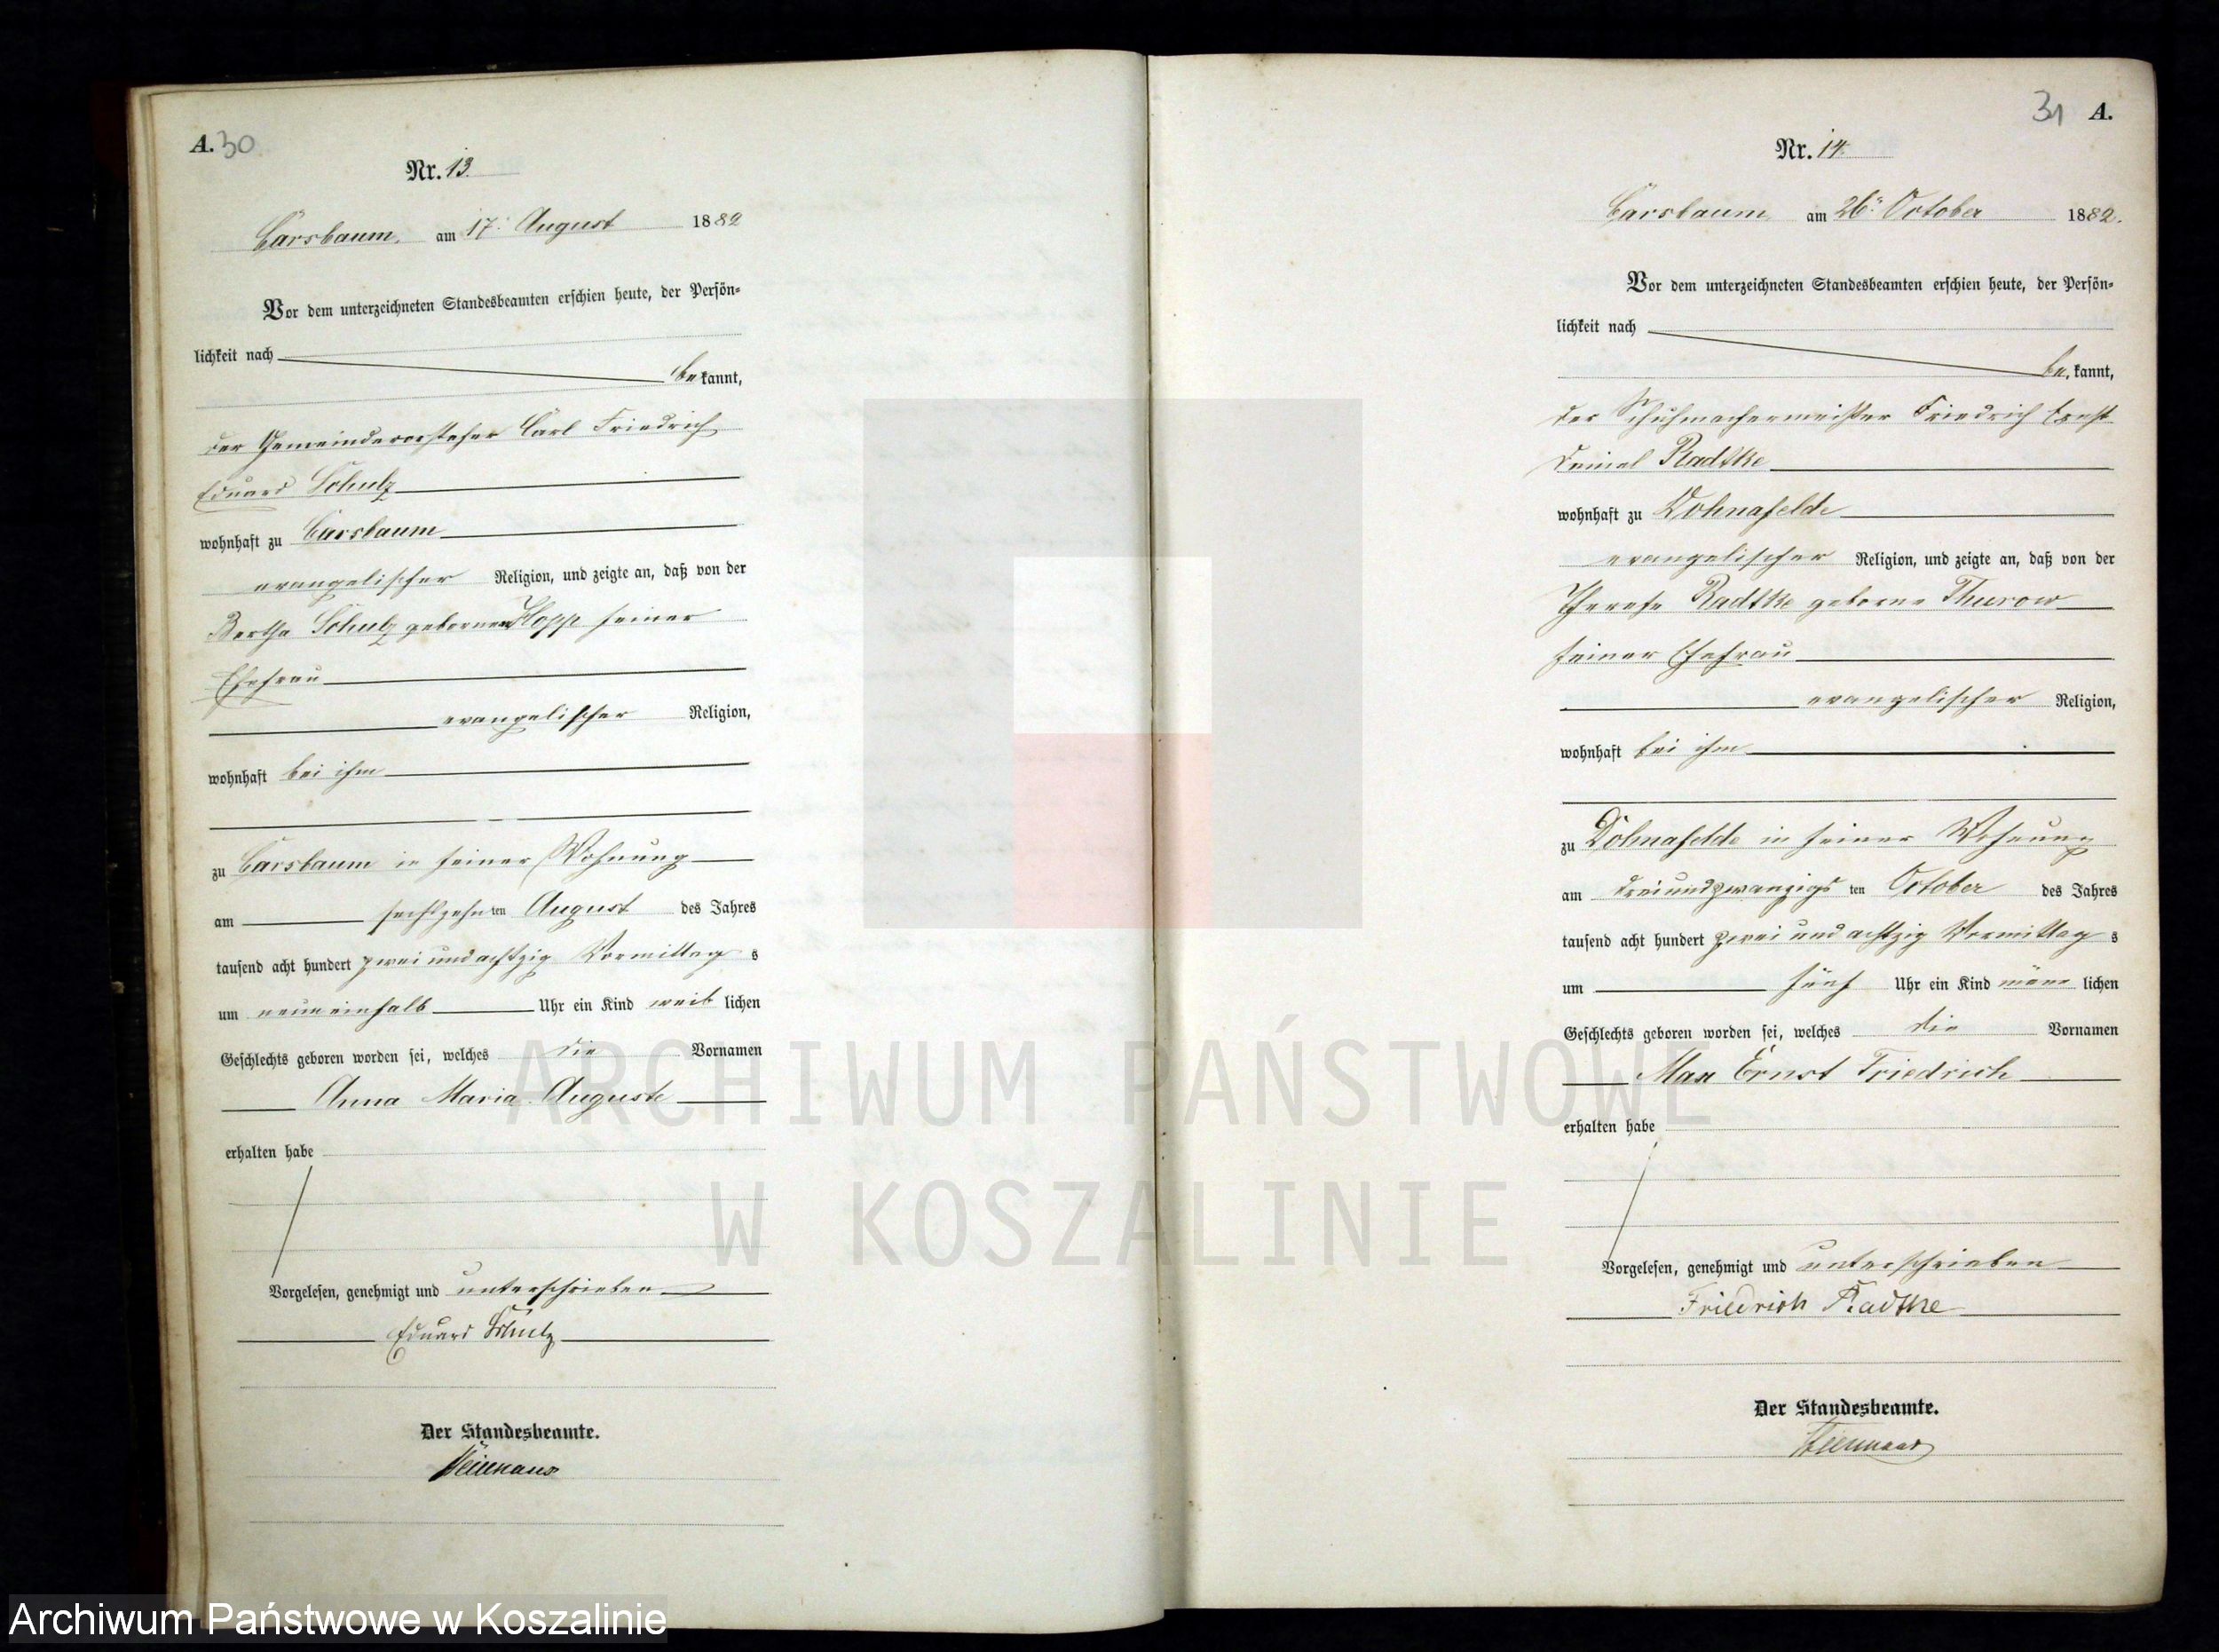 A. 30
Nr. 13.
Carsbaum, am 17. August 1882
Vor dem unterzeichneten Standesbeamten erschien heute, der Persön-
lichkeit nach
bekannt,
der Gemeindevorsteher Carl Friedrich
Eduard Schulz
wohnhaft zu Carsbaum
evangelischer Religion, und zeigte an, daß von der
Bertha Schulz gebornen Klopp seiner
Ehefrau
evangelischer Religion,
wohnhaft bei ihm
zu Carsbaum in seiner Wohnung
am sechszehnten August des Jahres
tausend acht hundert zwei und achtzig Vormittags
um neun einhalb Uhr ein Kind weiblichen
Geschlechts geboren worden sei, welches die Vornamen
Anna Maria Auguste
erhalten habe
Vorgelesen, genehmigt und unterschrieben
Eduard Schulz
Der Standesbeamte.
31 A.
Nr. 14.
Carsbaum, am 26. October 1882.
Vor dem unterzeichneten Standesbeamten erschien heute, der Persön-
lichkeit nach
bekannt,
der Schuhmachermeister Friedrich Ernst
Radtke
wohnhaft zu Dohnafelde
evangelischer Religion, und zeigte an, daß von der
Therese Radtke geborne Thurow
seiner Ehefrau
evangelischer Religion,
wohnhaft bei ihm
zu Dohnafelde in seiner Wohnung
am dreiundzwanzigsten October des Jahres
tausend acht hundert zwei und achtzig Vormittags
um fünf Uhr ein Kind männlichen
Geschlechts geboren worden sei, welches die Vornamen
Max Ernst Friedrich
erhalten habe
Vorgelesen, genehmigt und unterschrieben
Friedrich Radtke
Der Standesbeamte.
ARCHIWUM PAŃSTWOWE
W KOSZALINIE
Archiwum Państwowe w Koszalinie